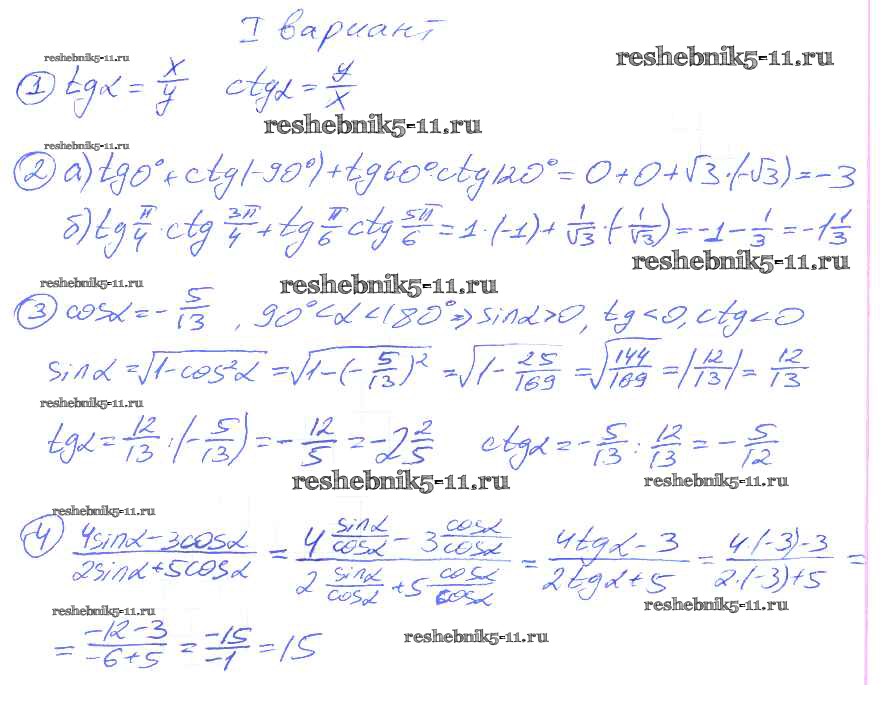 I вариант
reshebnik5-11.ru
reshebnik5-11.ru
① tgα = x/y ctgα = y/x
reshebnik5-11.ru
reshebnik5-11.ru
② а) tg0° + ctg(-90°) + tg60°ctg120° = 0 + 0 + √3·(-√3) = -3
б) tg π/4 · ctg 3π/4 + tg π/6 ctg 5π/6 = 1·(-1) + 1/√3·(-1/√3) = -1 - 1/3 = -1 1/3
reshebnik5-11.ru
reshebnik5-11.ru
reshebnik5-11.ru
③ cosα = - 5/13, 90° < α < 180° ⇒ sinα > 0, tg < 0, ctg < 0
sinα = √(1 - cos²α) = √(1 - (-5/13)²) = √(1 - 25/169) = √(144/169) = |12/13| = 12/13
reshebnik5-11.ru
tgα = 12/13 : (-5/13) = - 12/5 = -2 2/5 ctgα = - 5/13 : 12/13 = - 5/12
reshebnik5-11.ru
reshebnik5-11.ru
reshebnik5-11.ru
④ (4sinα - 3cosα)/(2sinα + 5cosα) = (4 sinα/cosα - 3 cosα/cosα)/(2 sinα/cosα + 5 cosα/cosα) = (4tgα - 3)/(2tgα + 5) = (4·(-3) - 3)/(2·(-3) + 5) =
reshebnik5-11.ru
reshebnik5-11.ru
= (-12 - 3)/(-6 + 5) = -15/-1 = 15
reshebnik5-11.ru